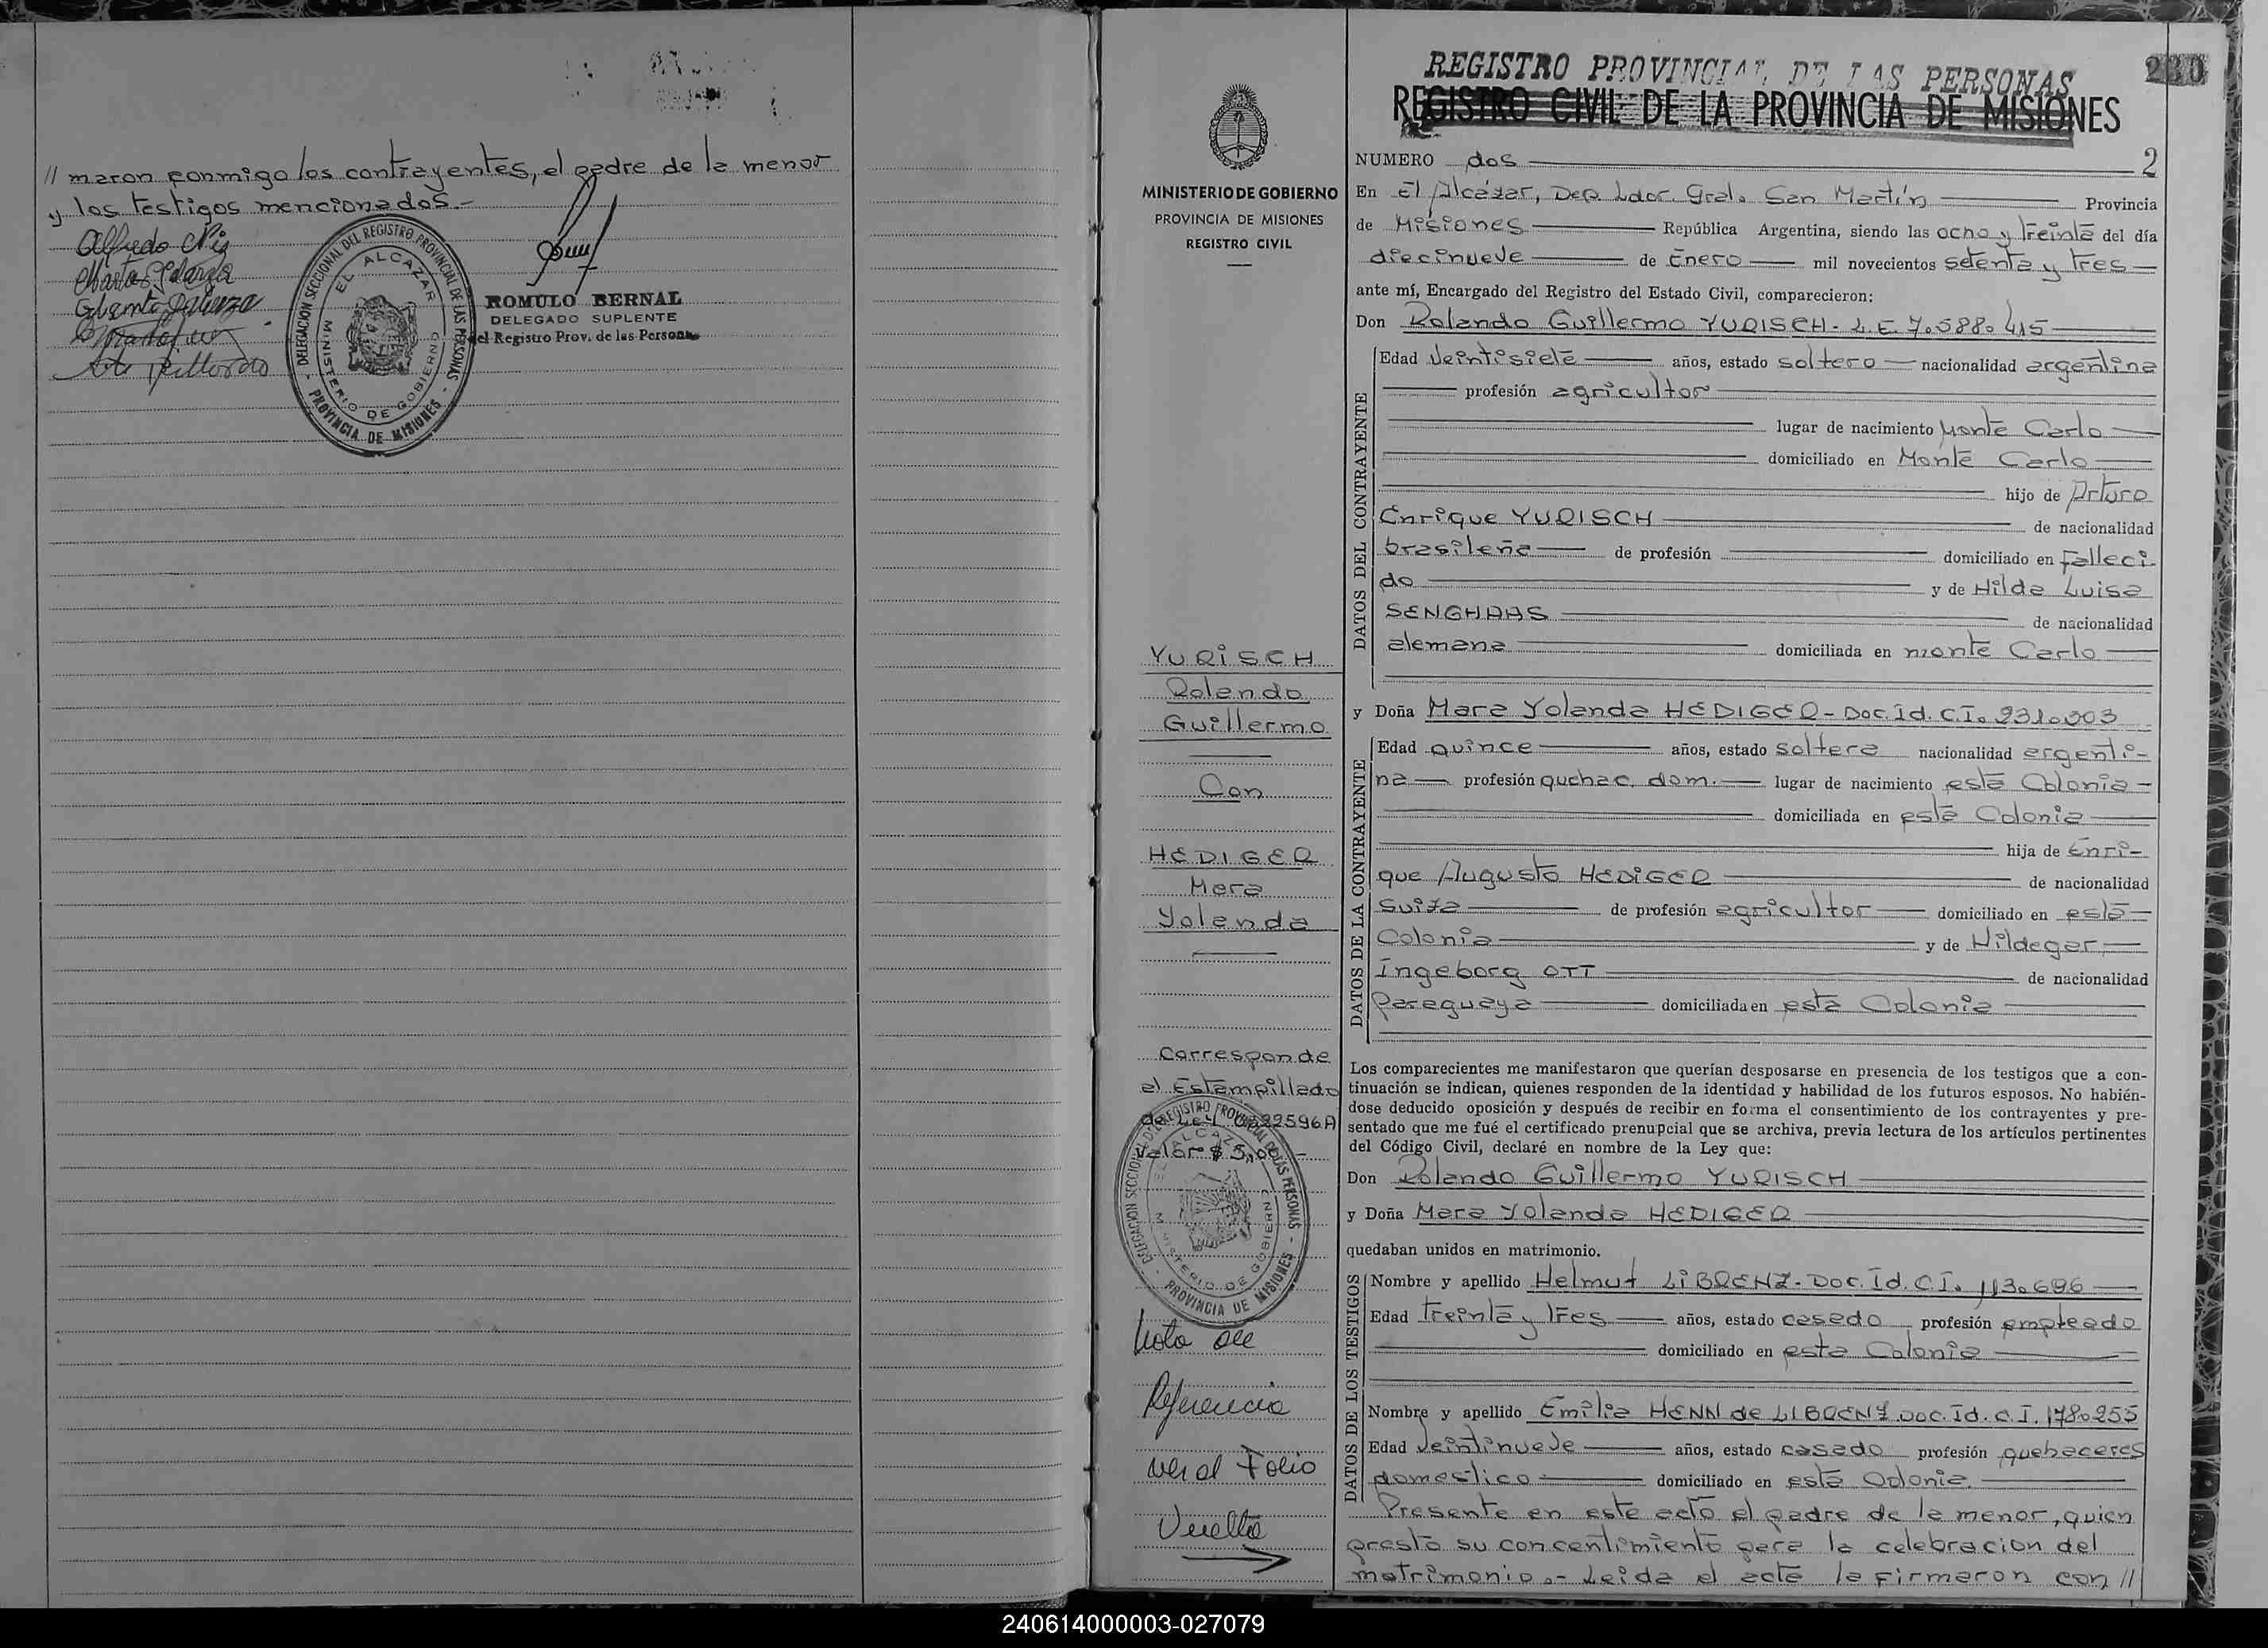 // maron conmigo los contrayentes, el padre de la menor
y los testigos mencionados.-
DELEGACION SECCIONAL DEL REGISTRO PROVINCIAL DE LAS PERSONAS - PROVINCIA DE MISIONES -
EL ALCAZAR
MINISTERIO DE GOBIERNO
ROMULO BERNAL
DELEGADO SUPLENTE
del Registro Prov. de las Personas
MINISTERIO DE GOBIERNO
PROVINCIA DE MISIONES
REGISTRO CIVIL
YURISCH
Rolando
Guillermo
Con
HEDIGER
Mara
Yolanda
Corresponde
al Estampillado
de Ley 022596A
valor $ 5,00
DELEGACION SECCIONAL DEL REGISTRO PROVINCIAL DE LAS PERSONAS - PROVINCIA DE MISIONES -
EL ALCAZAR
MINISTERIO DE GOBIERNO
Nota de
Referencia
ver al Folio
Vuelta
REGISTRO PROVINCIAL DE LAS PERSONAS
230
REGISTRO CIVIL DE LA PROVINCIA DE MISIONES
NUMERO dos 2
En El Alcázar, Dep. Ldor. Gral. San Martín Provincia
de Misiones República Argentina, siendo las ocho y treinta del día
diecinueve de Enero mil novecientos setenta y tres
ante mí, Encargado del Registro del Estado Civil, comparecieron:
Don Rolando Guillermo YURISCH- L.E. 7.588.415
DATOS DEL CONTRAYENTE
Edad veintisiete años, estado soltero nacionalidad argentina
profesión agricultor
lugar de nacimiento Monte Carlo
domiciliado en Monte Carlo
hijo de Arturo
Enrique YURISCH de nacionalidad
brasileña de profesión domiciliado en falleci-
do y de Hilda Luisa
SENGHAAS de nacionalidad
alemana domiciliada en monte Carlo
y Doña Mara Yolanda HEDIGER- Doc. Id. C.I. 231.003
DATOS DE LA CONTRAYENTE
Edad quince años, estado soltera nacionalidad argenti-
na profesión quehac. dom. lugar de nacimiento esta Colonia
domiciliada en esta Colonia
hija de Enri-
que Augusto HEDIGER de nacionalidad
suiza de profesión agricultor domiciliado en esta
Colonia y de Hildegar,
Ingeborg OTT de nacionalidad
Paraguaya domiciliada en esta Colonia
Los comparecientes me manifestaron que querían desposarse en presencia de los testigos que a con-
tinuación se indican, quienes responden de la identidad y habilidad de los futuros esposos. No habién-
dose deducido oposición y después de recibir en forma el consentimiento de los contrayentes y pre-
sentado que me fué el certificado prenupcial que se archiva, previa lectura de los artículos pertinentes
del Código Civil, declaré en nombre de la Ley que:
Don Rolando Guillermo YURISCH
y Doña Mara Yolanda HEDIGER
quedaban unidos en matrimonio.
DATOS DE LOS TESTIGOS
Nombre y apellido Helmut LIBRENZ- Doc. Id. C.I. 113.696
Edad treinta y tres años, estado casado profesión empleado
domiciliado en esta Colonia
Nombre y apellido Emilia HENN de LIBRENZ Doc. Id. C.I. 178.255
Edad veintinueve años, estado casado profesión quehaceres
domestico domiciliado en esta Colonia
Presente en este acto el padre de la menor, quien
presta su concentimiento para la celebracion del
matrimonio.- Leida el acta la firmaron con //
240614000003-027079